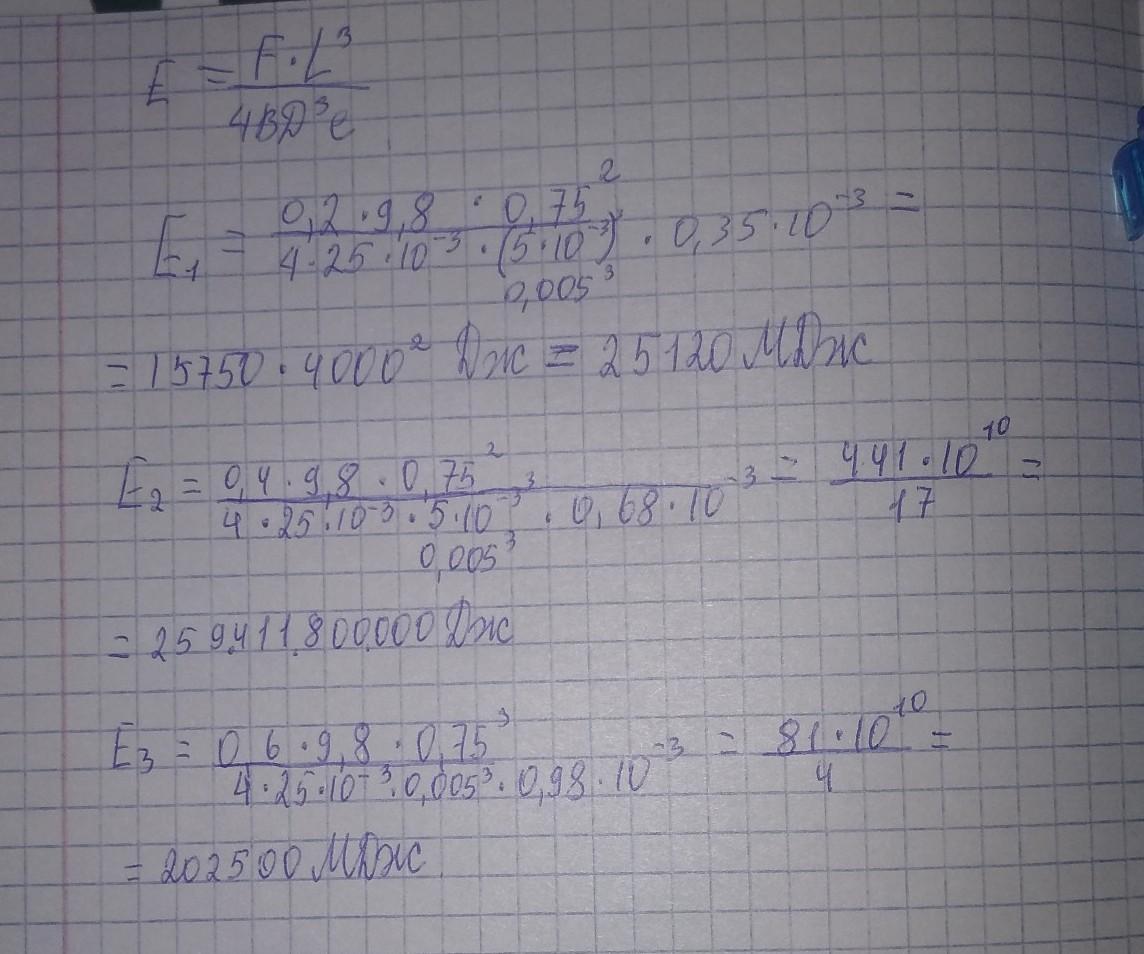 E = F·L³ / 4BD³e
E₁ = 0,2·9,8 · 0,75² / 4·25·10⁻³ · (5·10⁻³) · 0,35·10⁻³ =
0,005³
= 15750·4000² Дж = 25120 МДж
E₂ = 0,4·9,8·0,75² / 4·25·10⁻³·5·10⁻³ ³ · 0,68·10⁻³ = 441·10¹⁰ / 17 =
0,005³
= 259.411.800.000 Дж
E₃ = 0,6·9,8·0,75³ / 4·25·10⁻³·0,005³·0,98·10⁻³ = 81·10¹⁰ / 4 =
= 202500 МДж